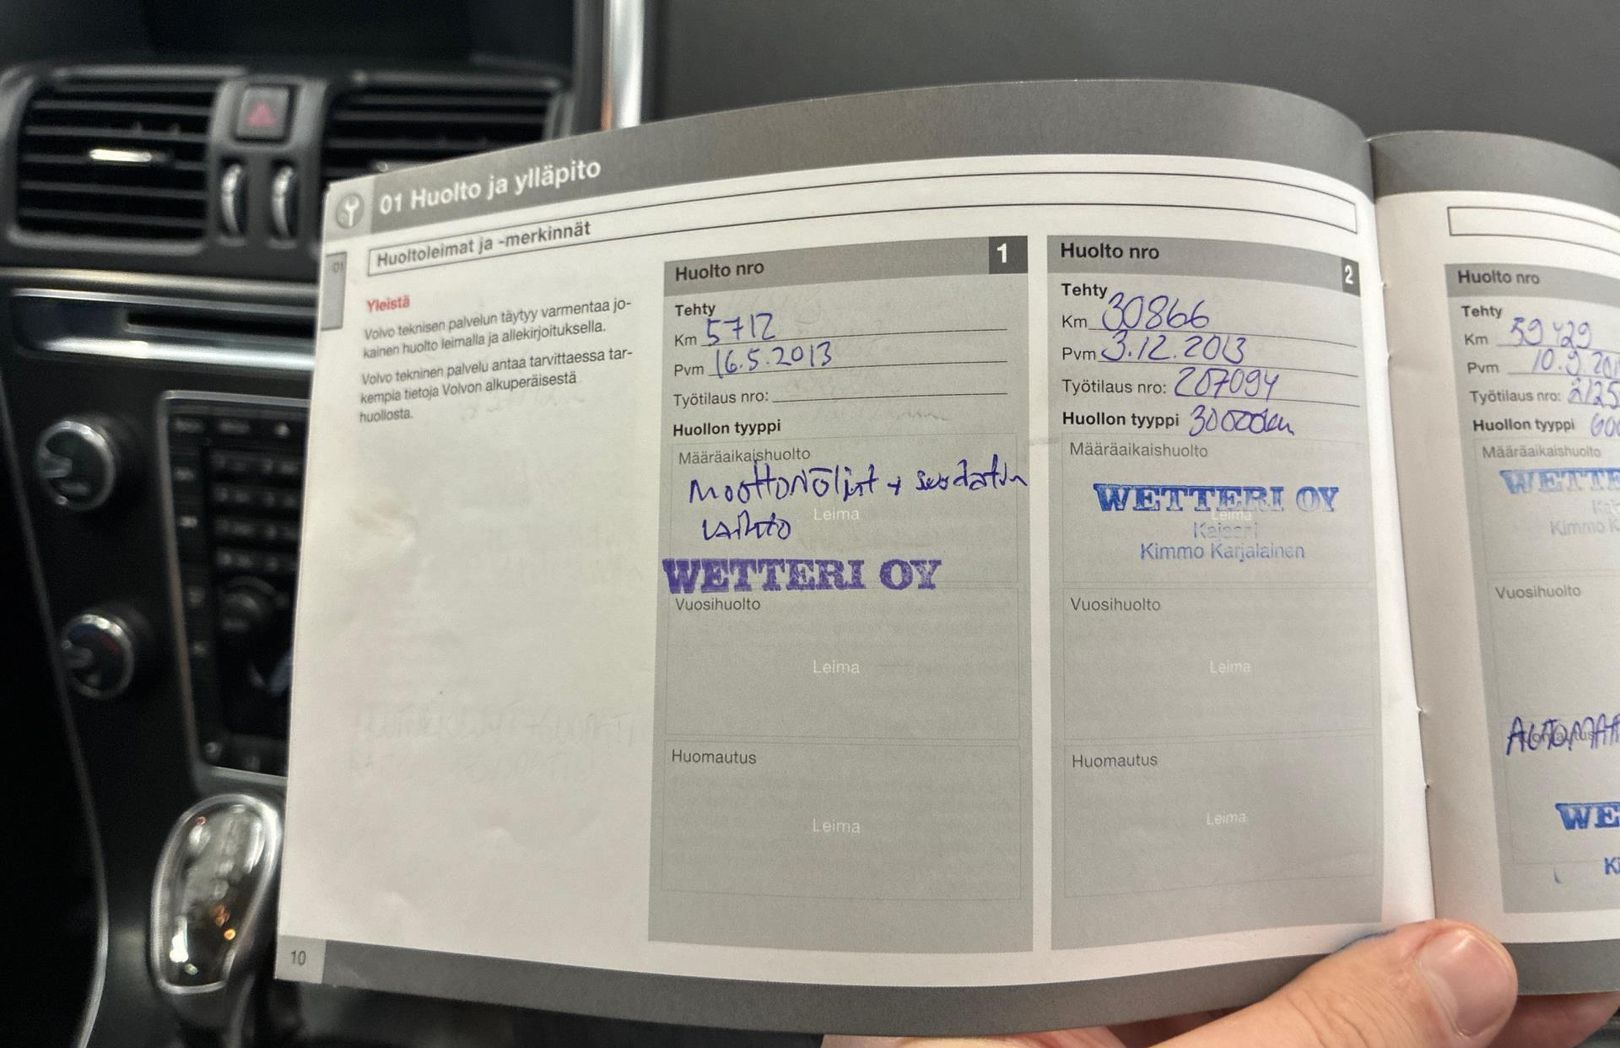 01 Huolto ja ylläpito
Huoltoleimat ja -merkinnät
01
Yleistä
Volvo teknisen palvelun täytyy varmentaa jo-
kainen huolto leimalla ja allekirjoituksella.
Volvo tekninen palvelu antaa tarvittaessa tar-
kempia tietoja Volvon alkuperäisestä
huollosta.
10
Huolto nro 1
Tehty
Km 5712
Pvm 16.5.2013
Työtilaus nro:
Huollon tyyppi
Määräaikaishuolto
Moottoriöljyt + suodatin
Leima
vaihto
WETTERI OY
Vuosihuolto
Leima
Huomautus
Leima
Huolto nro 2
Tehty
Km 30866
Pvm 3.12.2013
Työtilaus nro: 207094
Huollon tyyppi 30000km
Määräaikaishuolto
WETTERI OY
Leima
Kajaani
Kimmo Karjalainen
Vuosihuolto
Leima
Huomautus
Leima
Huolto nro
Tehty
Km 59429
Pvm 10.9.201
Työtilaus nro: 2125
Huollon tyyppi 600
Määräaikaishuolto
WETTE
Kimmo
Vuosihuolto
AUTOMAA
WE